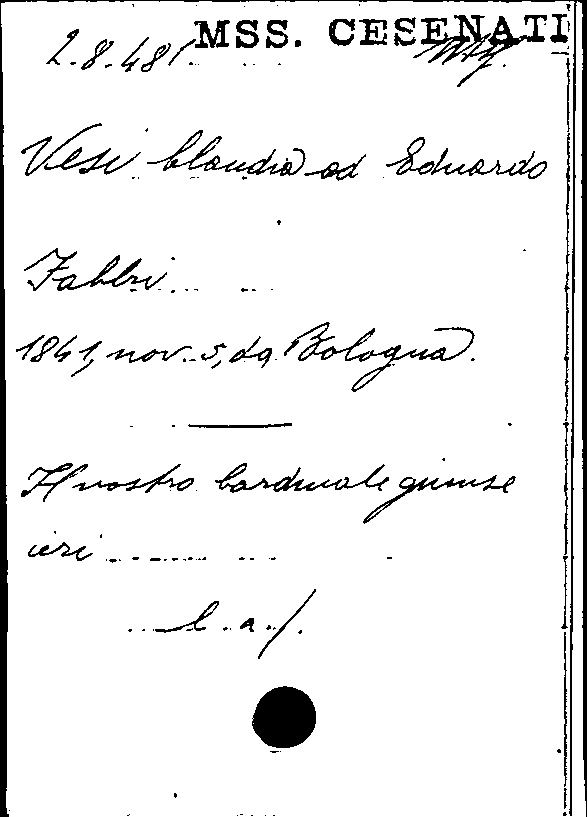 MSS. CESENATI
2.8.481.
Vesi Claudia ad Eduardo
Fabbri
1841, nov. 5, da Bologna.
Il nostro Cardinale giunse
ieri
l. a. f.